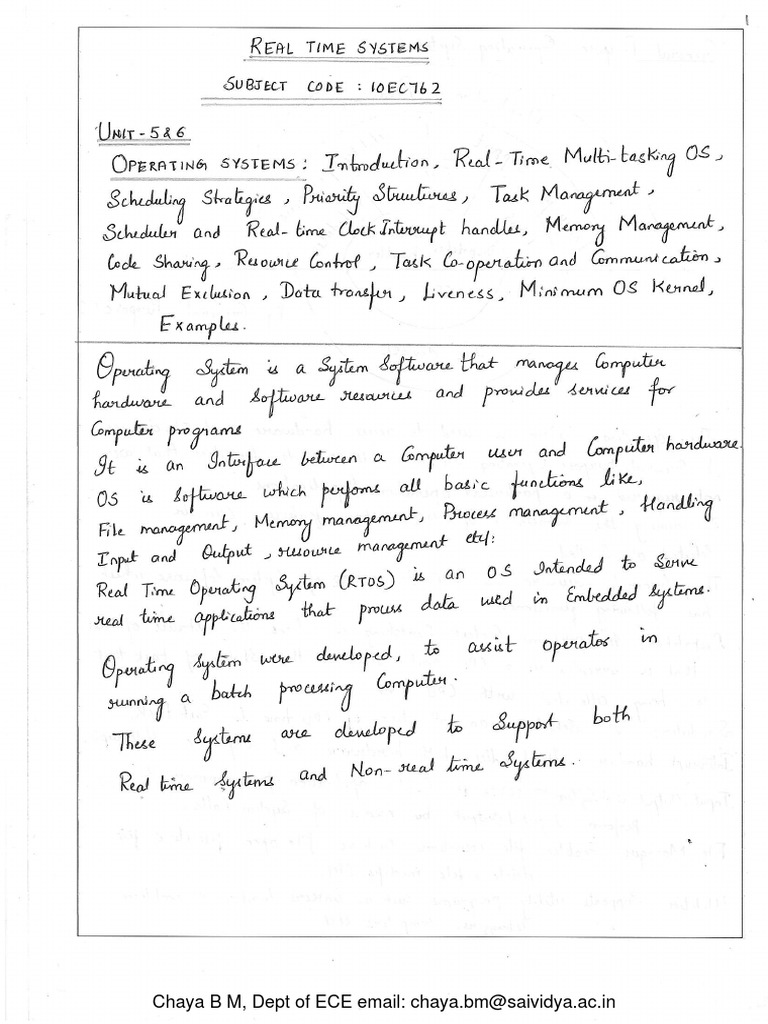 1
REAL TIME SYSTEMS
SUBJECT CODE : 10EC762
UNIT - 5 & 6
OPERATING SYSTEMS : Introduction, Real-Time Multi-tasking OS,
Scheduling Strategies, Priority Structures, Task Management,
Scheduler and Real-time Clock Interrupt handles, Memory Management,
Code Sharing, Resource Control, Task Co-operation and Communication,
Mutual Exclusion, Data transfer, Liveness, Minimum OS Kernel,
Examples.
Operating System is a System Software that manages Computer
hardware and Software resources and provides services for
Computer programs
It is an Interface between a Computer user and Computer hardware.
OS is Software which perfoms all basic functions like,
File management, Memory management, Process management, Handling
Input and Output, resource management etc/:
Real Time Operating System (RTOS) is an OS Intended to Serve
real time applications that process data used in Embedded Systems.
Operating System were developed, to assist operatos in
running a batch processing Computer.
These Systems are developed to Support both
Real time Systems and Non-real time Systems.
Chaya B M, Dept of ECE email: chaya.bm@saividya.ac.in